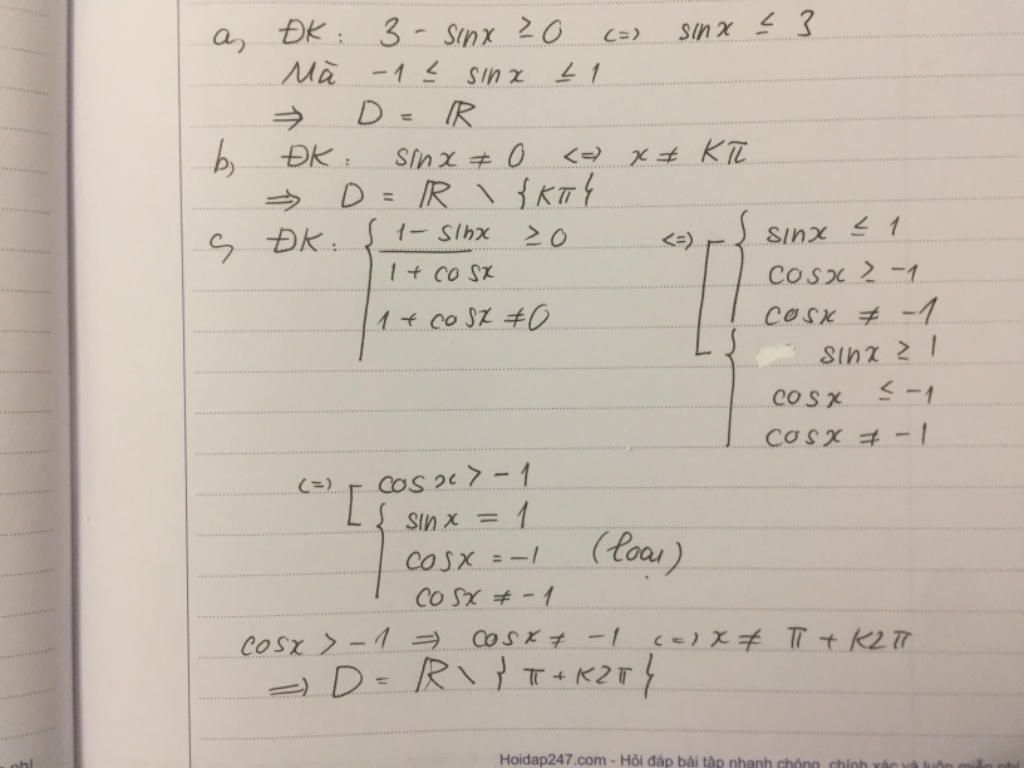 a, ĐK: 3 - sinx ≥ 0 <=> sinx ≤ 3
Mà -1 ≤ sinx ≤ 1
=> D = ℝ
b, ĐK: sinx ≠ 0 <=> x ≠ Kπ
=> D = ℝ \ {Kπ}
c, ĐK: { (1 - sinx)/(1 + cosx) ≥ 0 <=> [ { sinx ≤ 1
cosx ≥ -1
1 + cosx ≠ 0 cosx ≠ -1
{ sinx ≥ 1
cosx ≤ -1
cosx ≠ -1
<=> [ cosx > -1
{ sinx = 1
cosx = -1 (loại)
cosx ≠ -1
cosx > -1 => cosx ≠ -1 <=> x ≠ π + K2π
=> D = ℝ \ {π + K2π}
Hoidap247.com - Hỏi đáp bài tập nhanh chóng, chính xác và luôn miễn phí
phí